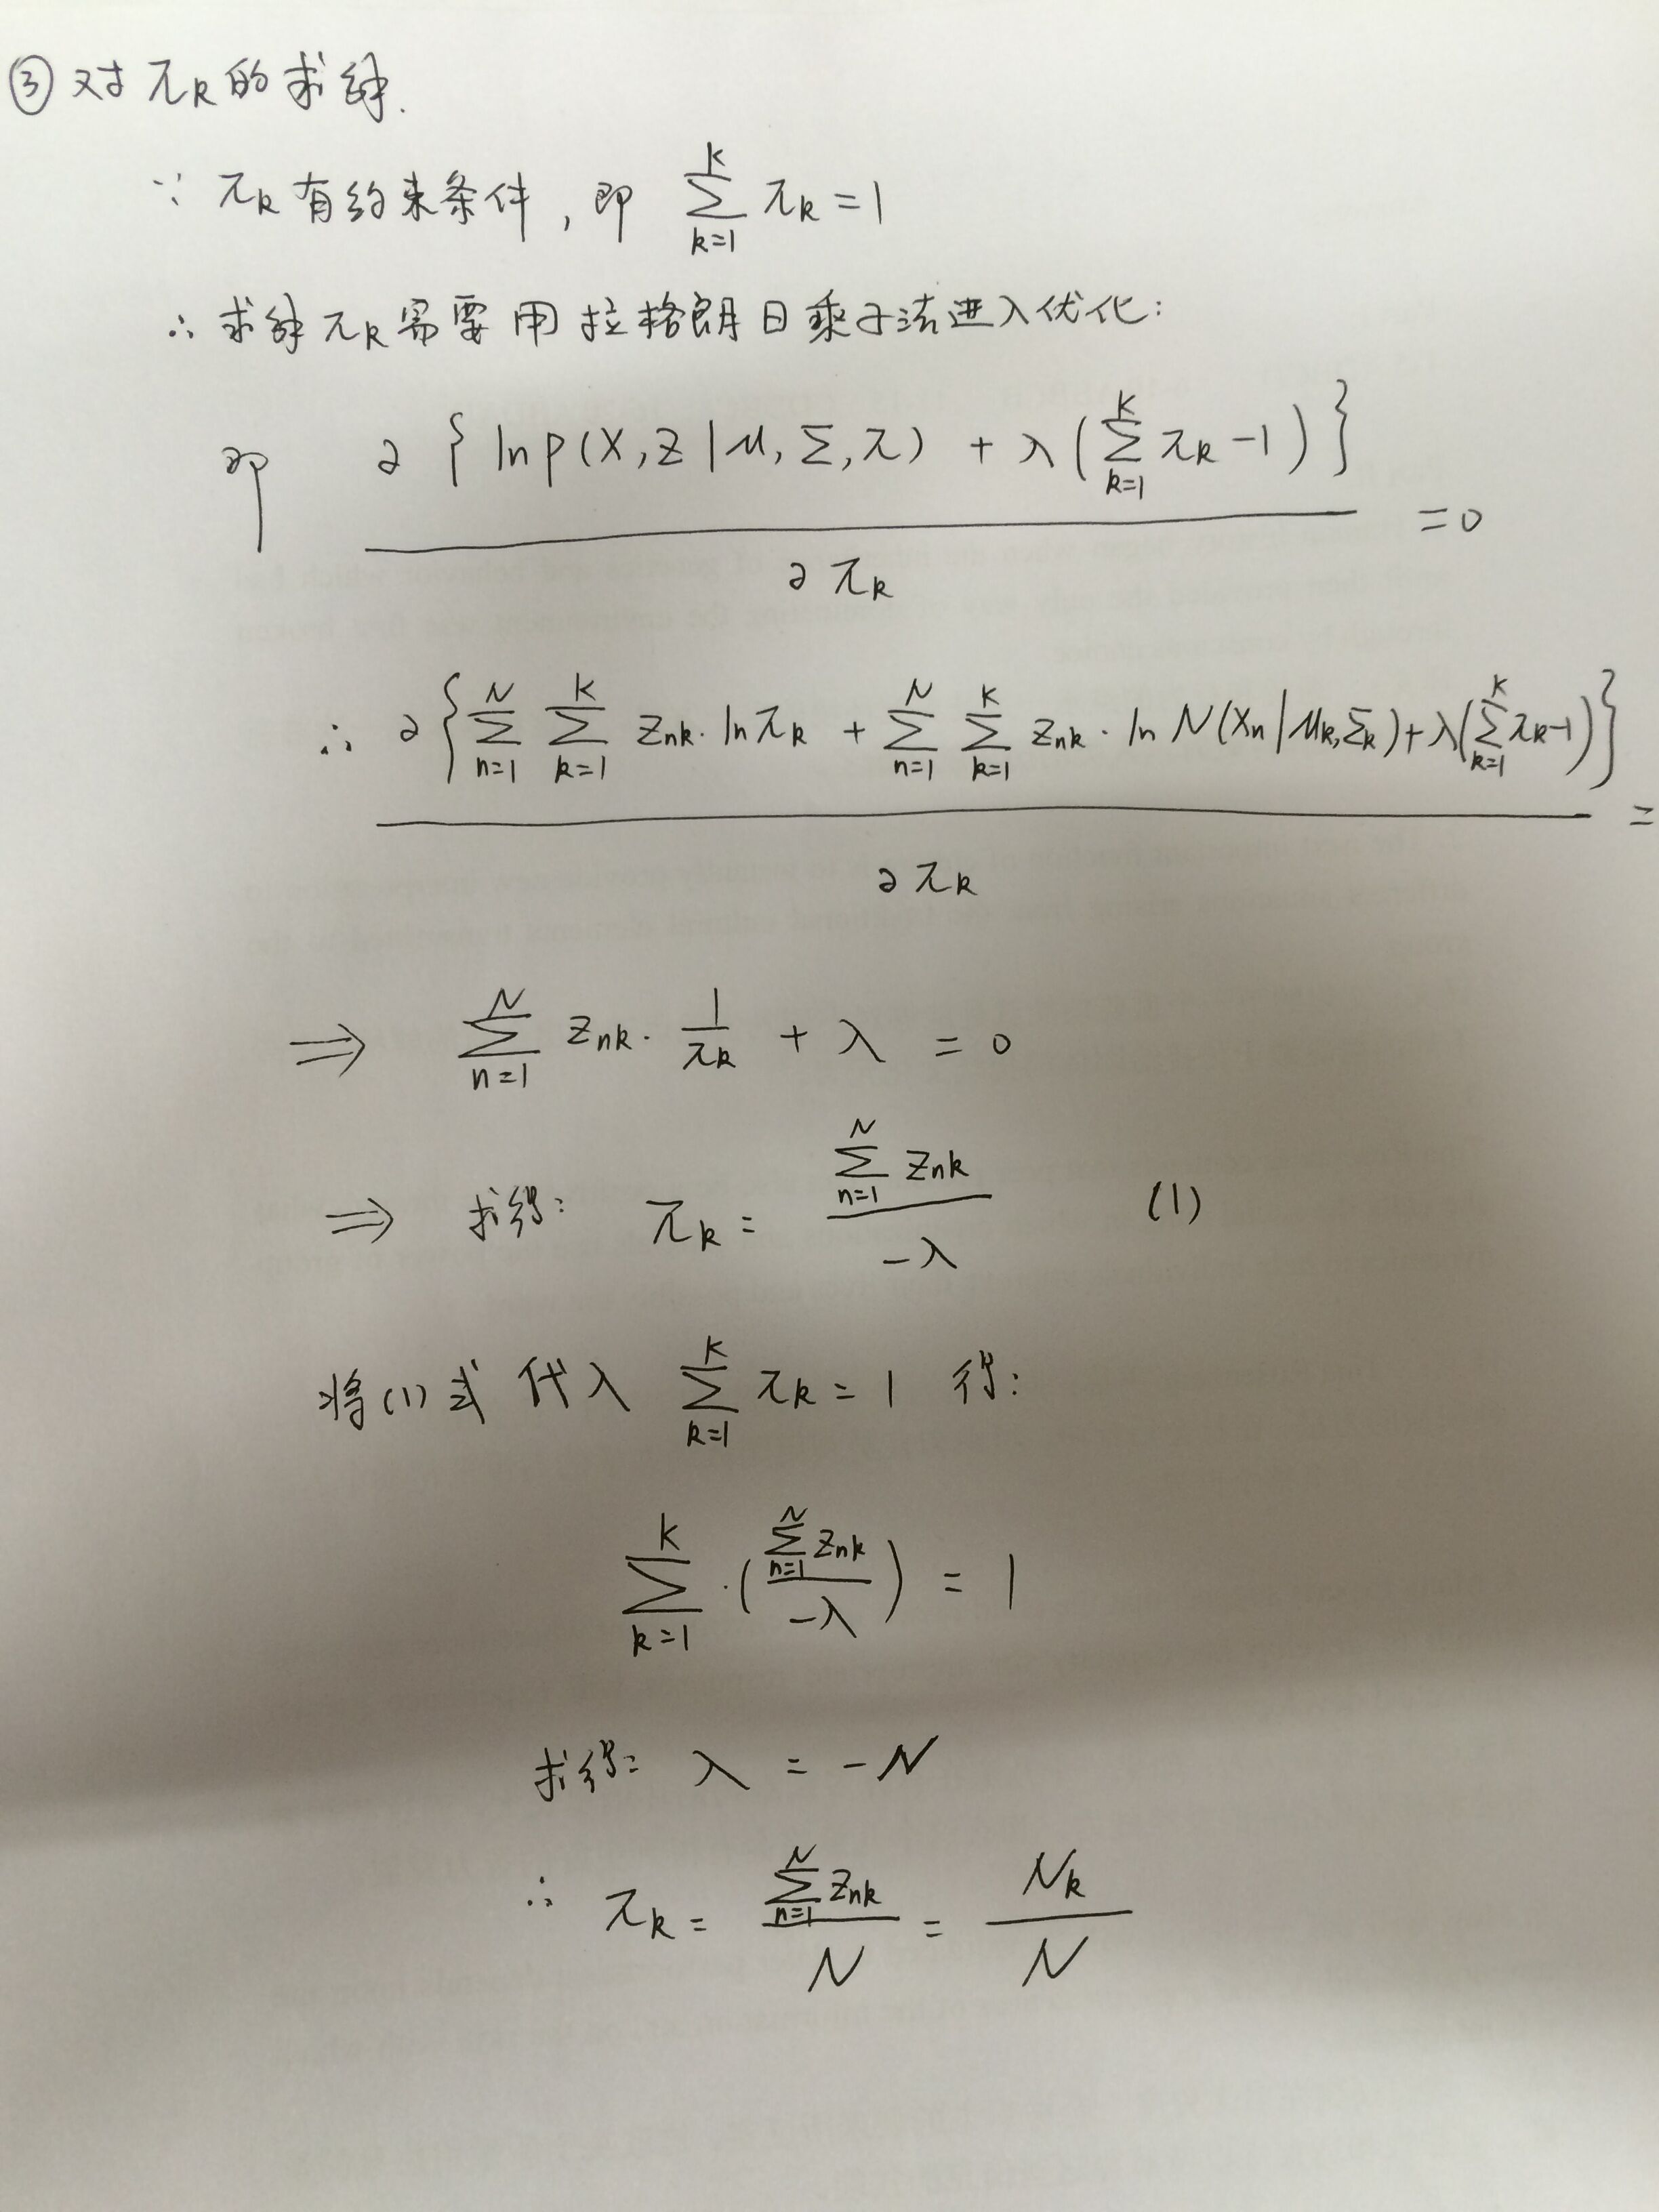 ③ 对 π_k 的求解.
∵ π_k 有约束条件, 即 \sum_{k=1}^{K} π_k = 1
∴ 求解 π_k 需要用拉格朗日乘子法进入优化:
即 \frac{∂ \{ ln p(X, Z | μ, Σ, π) + λ ( \sum_{k=1}^{K} π_k - 1 ) \}}{∂ π_k} = 0
∴ \frac{∂ \{ \sum_{n=1}^{N} \sum_{k=1}^{K} z_{nk} · ln π_k + \sum_{n=1}^{N} \sum_{k=1}^{K} z_{nk} · ln N(x_n | μ_k, Σ_k) + λ ( \sum_{k=1}^{K} π_k - 1 ) \}}{∂ π_k} =
⇒ \sum_{n=1}^{N} z_{nk} · \frac{1}{π_k} + λ = 0
⇒ 求得: π_k = \frac{\sum_{n=1}^{N} z_{nk}}{-λ} (1)
将(1)式代入 \sum_{k=1}^{K} π_k = 1 得:
\sum_{k=1}^{K} · ( \frac{\sum_{n=1}^{N} z_{nk}}{-λ} ) = 1
求得: λ = -N
∴ π_k = \frac{\sum_{n=1}^{N} z_{nk}}{N} = \frac{N_k}{N}